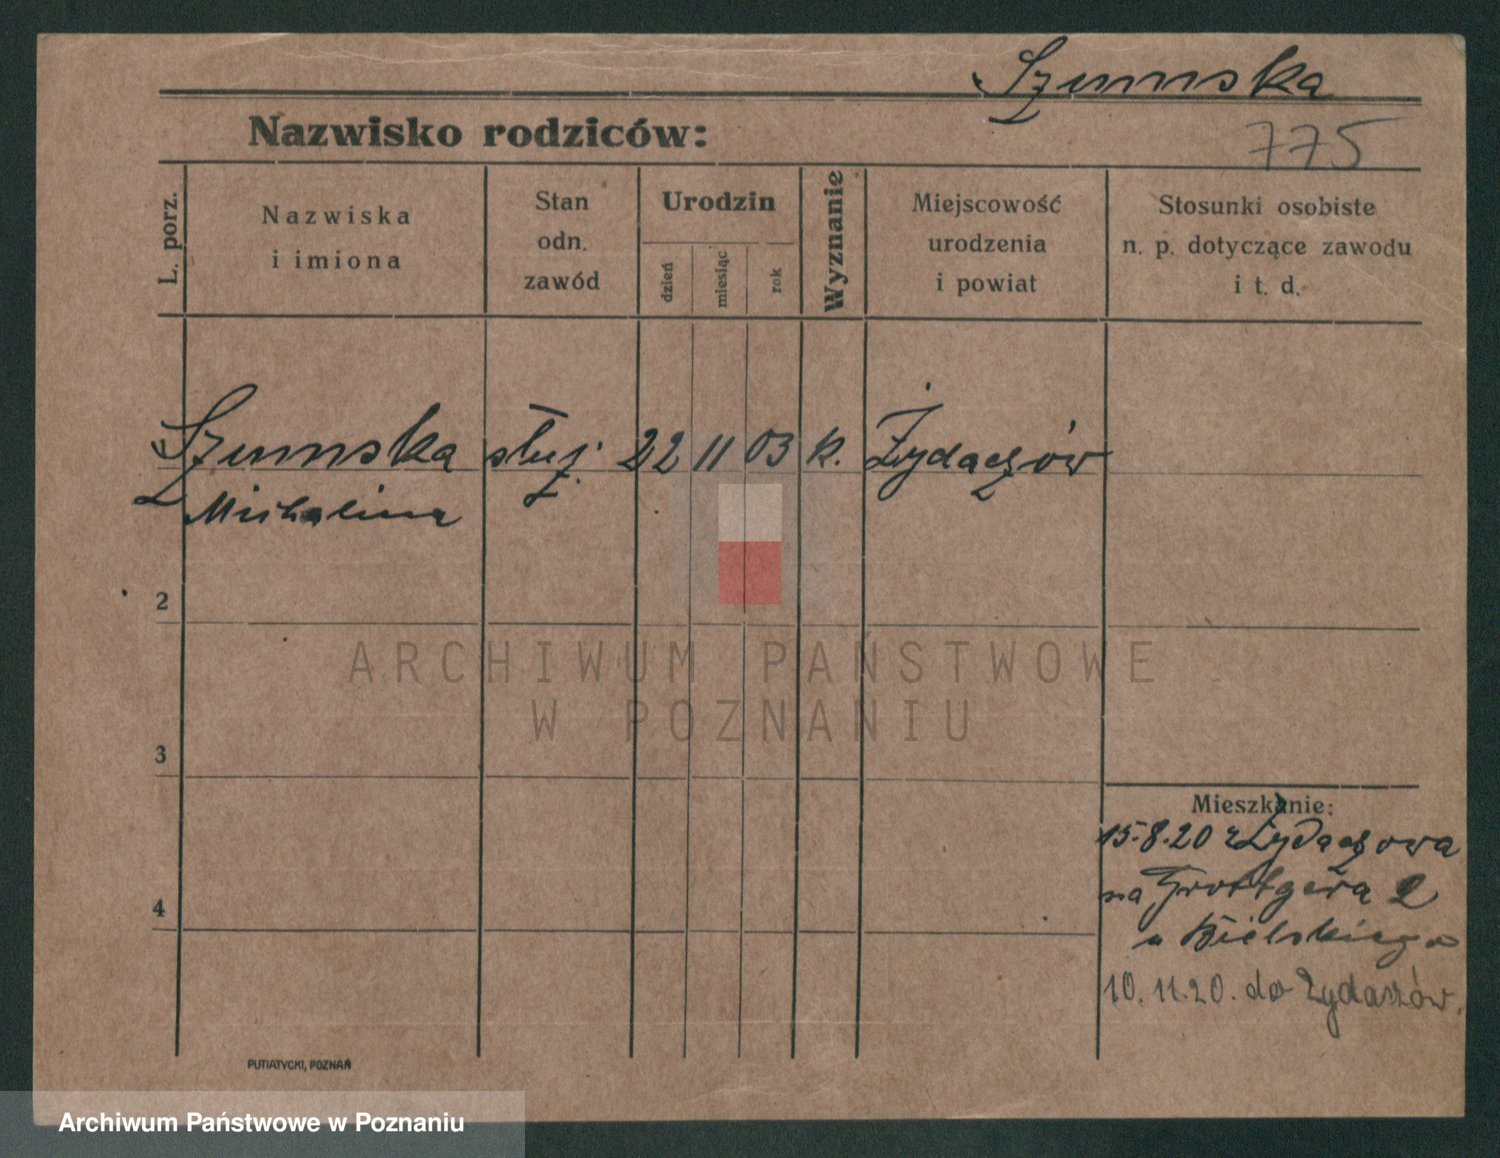 Szumska
Nazwisko rodziców:
775
L. porz.
Nazwiska
i imiona
Stan
odn.
zawód
Urodzin
dzień
miesiąc
rok
Wyznanie
Miejscowość
urodzenia
i powiat
Stosunki osobiste
n. p. dotyczące zawodu
i t. d.
Szumska służ. 22 11 03 k. Żydaczów
Michalina
2
3
4
Mieszkanie:
15.8.20 z Żydaczowa
na Grottgera 2
u Bielskiego
10.11.20. do Żydaczów.
PUTIATYCKI, POZNAŃ
ARCHIWUM PAŃSTWOWE
W POZNANIU
Archiwum Państwowe w Poznaniu